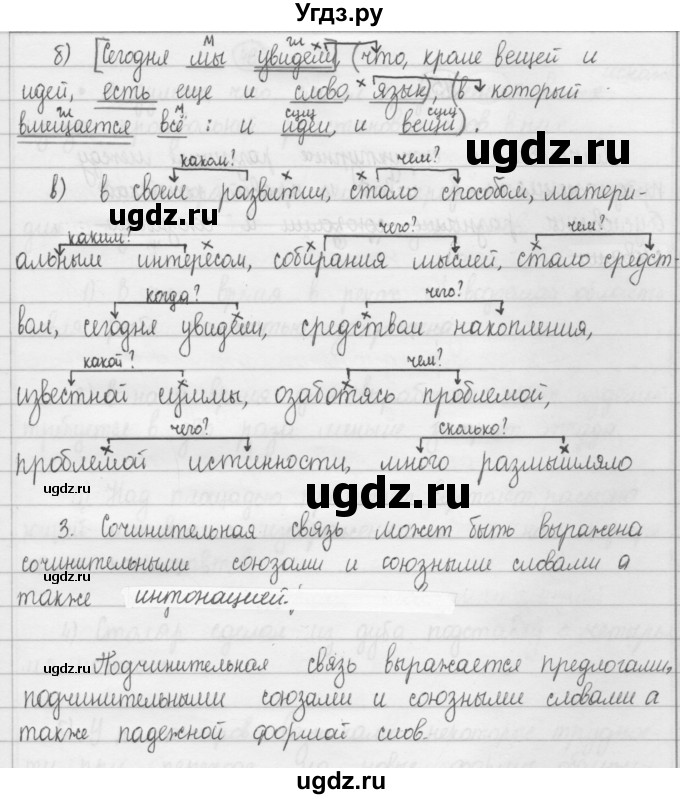 Угдз.ру
м гл
б) [Сегодня мы увидели, (что, кроме вещей и
идей, есть еще и слово, язык), (в который
гл м сущ сущ
вмещается всё: и идеи, и вещи).
каком? чем?
в) в своем развитии, стало способом, матери-
каким? чего? чем?
альным интересом, собирания мыслей, стало средст-
когда? чего?
вом, сегодня увидели, средством накопления,
какой? чем?
известной суммы, озаботясь проблемой,
чего? сколько?
проблемой истинности, много размышляло
3. Сочинительная связь может быть выражена
сочинительными союзами и союзными словами а
также интонацией.
Подчинительная связь выражается предлогами,
подчинительными союзами и союзными словами а
также падежной формой слов.
ugdz.ru
ugdz.ru
ugdz.ru
ugdz.ru
ugdz.ru
ugdz.ru
ugdz.ru
ugdz.ru